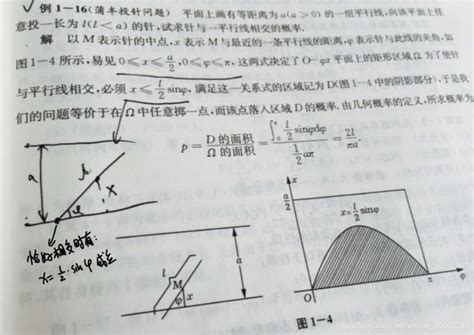 √ 例1-16(蒲丰投针问题) 平面上画有等距离为a(a>0)的一组平行线,向该平面任
意投一长为l(l<a)的针,试求针与一平行线相交的概率.
解 以M表示针的中点,x表示M与最近的一条平行线的距离,φ表示针与此线的夹角,如
图1-4所示,易见0≤x≤a/2,0≤φ≤π,这两式决定了O-φx平面上的矩形区域Ω.为了使针
与平行线相交,必须x≤l/2 sinφ,满足这一关系式的区域记为D(图1-4中的阴影部分),于是我
们的问题等价于在Ω中任意掷一点,而该点落入区域D的概率.由几何概率的定义,所求概率为
p=D的面积/Ω的面积=∫₀^π l/2 sinφdφ / 1/2 aπ=2l/πa.
a
φ
x
恰好相交时有:
x=l/2·sinφ 成立
l
M
φ
x
a
x
a/2
x=l/2 sinφ
O
π
φ
图1-4